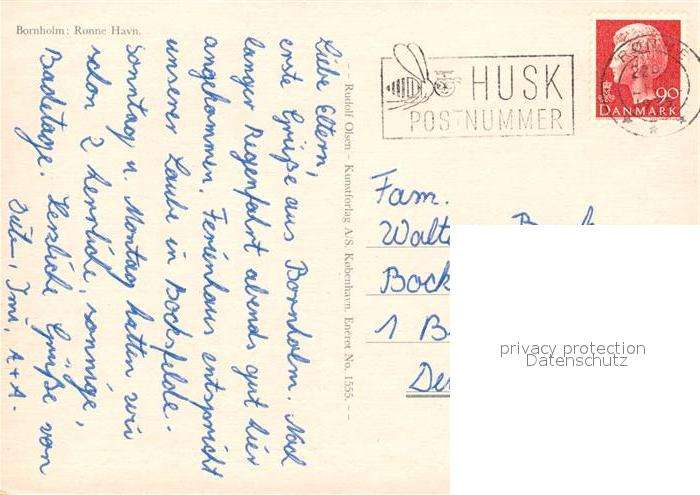 Bornholm: Rønne Havn.
Liebe Eltern,
erste Grüße aus Bornholm. Nach
langer Regenfahrt abends gut hier
angekommen. Ferienhaus entspricht
unserer Laube in Bocksfelde.
Sonntag u. Montag hatten wir
schon 2 herrliche, sonnige,
Badetage. Herzliche Grüße von
A + A.
-- Rudolf Olsen - Kunstforlag A/S. København. Eneret No. 1555. --
HUSK
POSTNUMMER
RØNNE
90
DANMARK
Fam.
Walte
Bock
1 B
De
privacy protection
Datenschutz